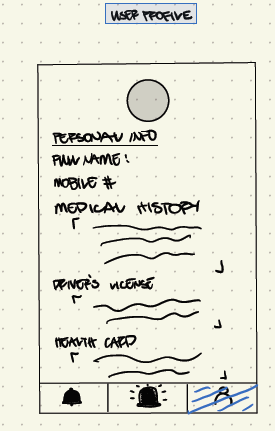 USER PROFILE
PERSONAL INFO
FULL NAME:
MOBILE #
MEDICAL HISTORY
DRIVER'S LICENSE
HEALTH CARD